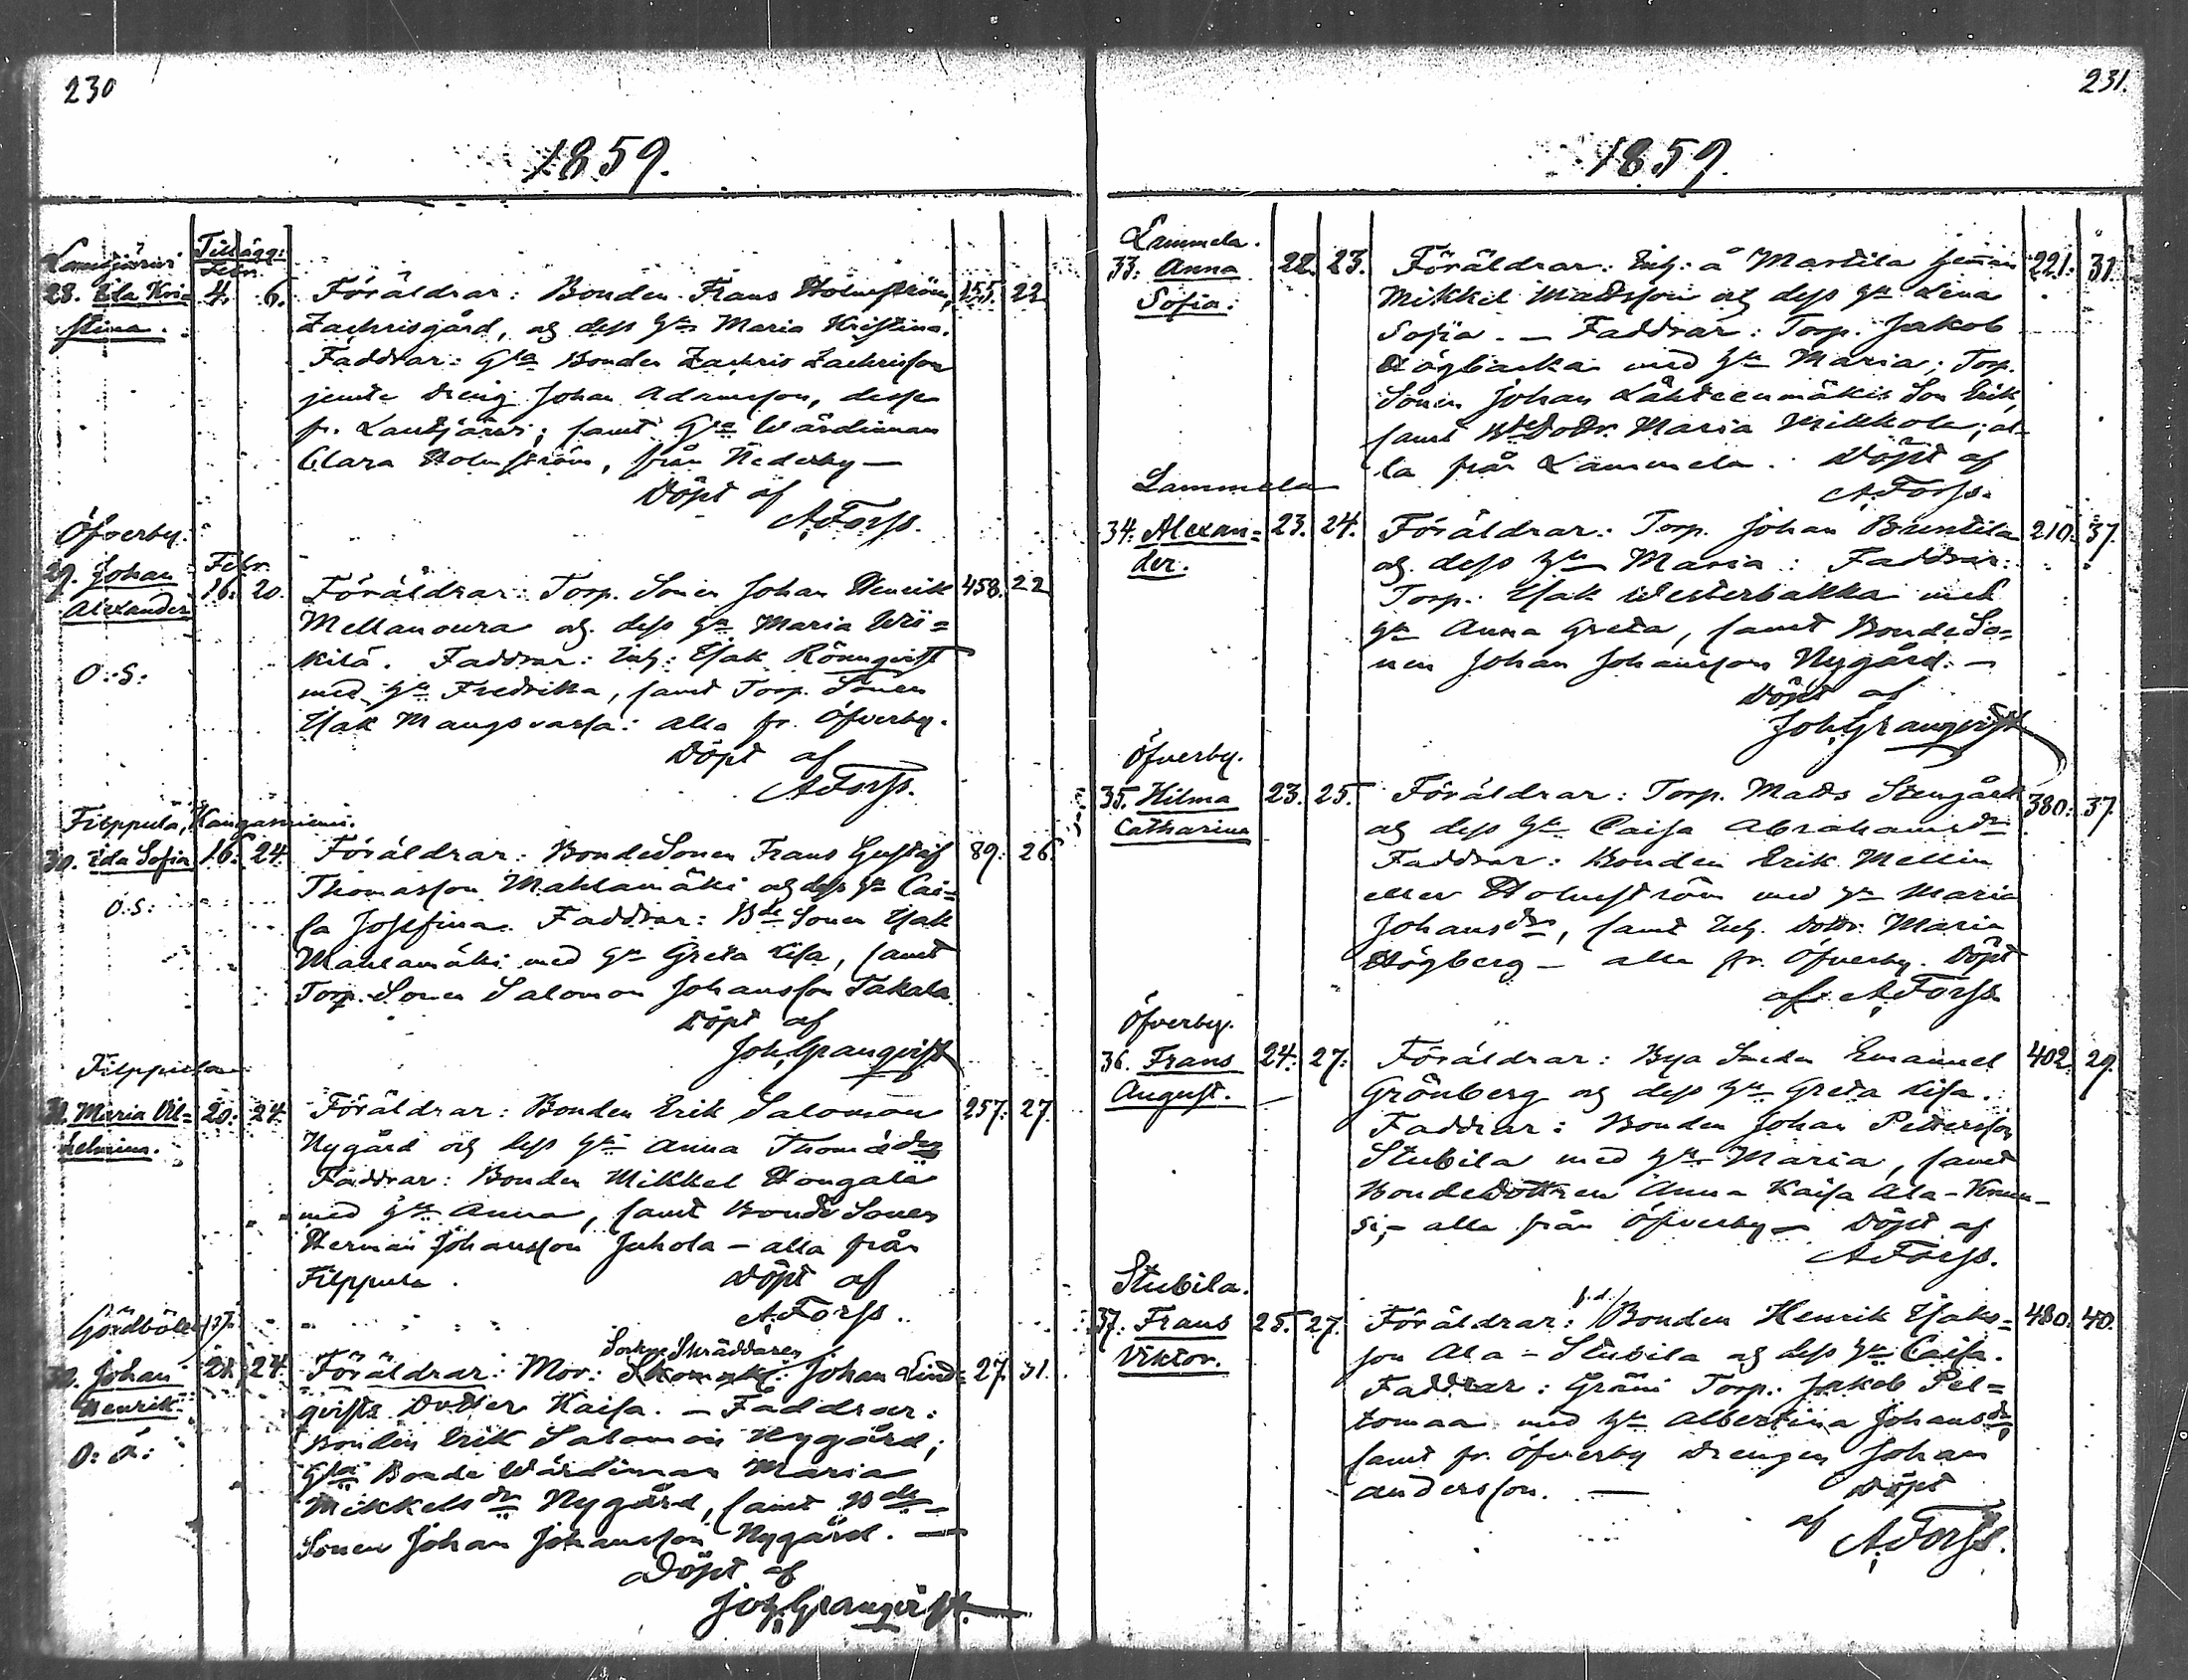 230
1859.
Lautjärwi Tillägg:
Febr.
28. Eda Kri= 4. 6. Föräldrar: Bonden Frans Holmström, 155. 22
stina. Zachrisgård, og dess H:u Maria Kristina.
Faddrar: G:la Bonden Zachris Zachrisson
jemte dreng Johan Adamsson, desse
fr. Lautjärwi; samt G:la Wärdinnan
Clara Holmström, från Nederby —
Döpt af
A. Forss.
Öfverby.
29. Johan Febr.
Alexander 16. 20. Föräldrar: Torp. Sonen Johan Henrik 458. 22
Mellanoura og. dess H:u Maria Wii=
kilä. Faddrar: Inh: Isak Rönnqvist
O:S: med H:u Fredrika, samt Torp. Sonen
Isak Mangsvarsa: alla fr. Öfverby.
Döpt af
A Forss.
Filppula, Kangasniemi.
30. Ida Sofia 16. 24. Föräldrar: BondeSonen Frans Gustaf 89. 26.
Thomasson Mahlamäki og dess H:u Cai=
O:S: sa Josefina. Faddrar: B:de Sonen Isak
Mahlamäki med H:u Greta Lisa, samt
Torp. Sonen Salomon Johansson Takala
Döpt af
Joh. Granqvist
Filppula
31. Maria Vil= 20. 24. Föräldrar: Bonden Erik Salomon 257. 27.
helmina. Nygård og dess H:u Anna Thomasd:r
Faddrar: Bonden Mikkel Hongala
med H:u Anna, samt Bonde Sonen
Herman Johansson Juhola — alla från
Filppula. Döpt af
A. Forss.
Gördböle
Sockne Skräddaren
32. Johan 21. 24. Föräldrar: Mor: Johan Lind= 27. 31.
Henrik qvists Dotter Kaisa. — Faddrar:
Bonden Erik Salomon Nygård;
O: Ä: G:la Bonde Wärdinnan Maria
Mikkelsd:r Nygård, samt B:de
Sonen Johan Johansson Nygård. —
Döpt af
Joh. Granqvist.
231.
1859.
Lammela.
33. Anna 22. 23. Föräldrar: Inh: å Martila Hemman 221. 31.
Sofia. Mikkel Madsson og dess H:u Lena
Sofia. — Faddrar: Torp. Jakob
Högbacka med H:u Maria; Torp.
Sonen Johan Lähteenmäkis Son Erik,
samt B:deDottr. Maria Mikkola; al=
la från Lammela. Döpt af
A. Forss.
Lammela
34. Alexan= 23. 24. Föräldrar: Torp. Johan Bruntila 210. 37.
der. og. dess H:u Maria: Faddrar:
Torp. Isak Westerbakka med
H:u Anna Greta, samt BondeSo=
nen Johan Johansson Nygård. —
Döpt af
Joh. Granqvist
Öfverby.
35. Hilma 23. 25. Föräldrar: Torp. Mads Stengård 380. 37.
Catharina og dess H:u Caisa Abrahamsd:r
Faddrar: Bonden Erik Mellin
eller Holmström med H:u Maria
Johansd:r, samt Inh. Dottr. Maria
Högberg — alla fr. Öfverby. Döpt
af A. Forss.
Öfverby.
36. Frans 24. 27. Föräldrar: Bya Smeden Emanuel 402. 29.
August. Grönberg og dess H:u Greta Lisa.
Faddrar: Bonden Johan Pettersson
Stubila med H:u Maria, samt
BondeDottren Anna Kaisa Ala-
si; — alla från Öfverby — Döpt af
A Forss.
Stubila.
f.d.
37. Frans 25. 27. Föräldrar: Bonden Henrik Isaks= 480. 40.
Viktor. son Ala-Stubila og dess H:u Caisa.
Faddrar: Gräni Torp. Jakob Pel=
tomaa med H:u Albertina Johansd:r,
samt fr. Öfverby Drengen Johan
andersson. — Döpt
af A. Forss.